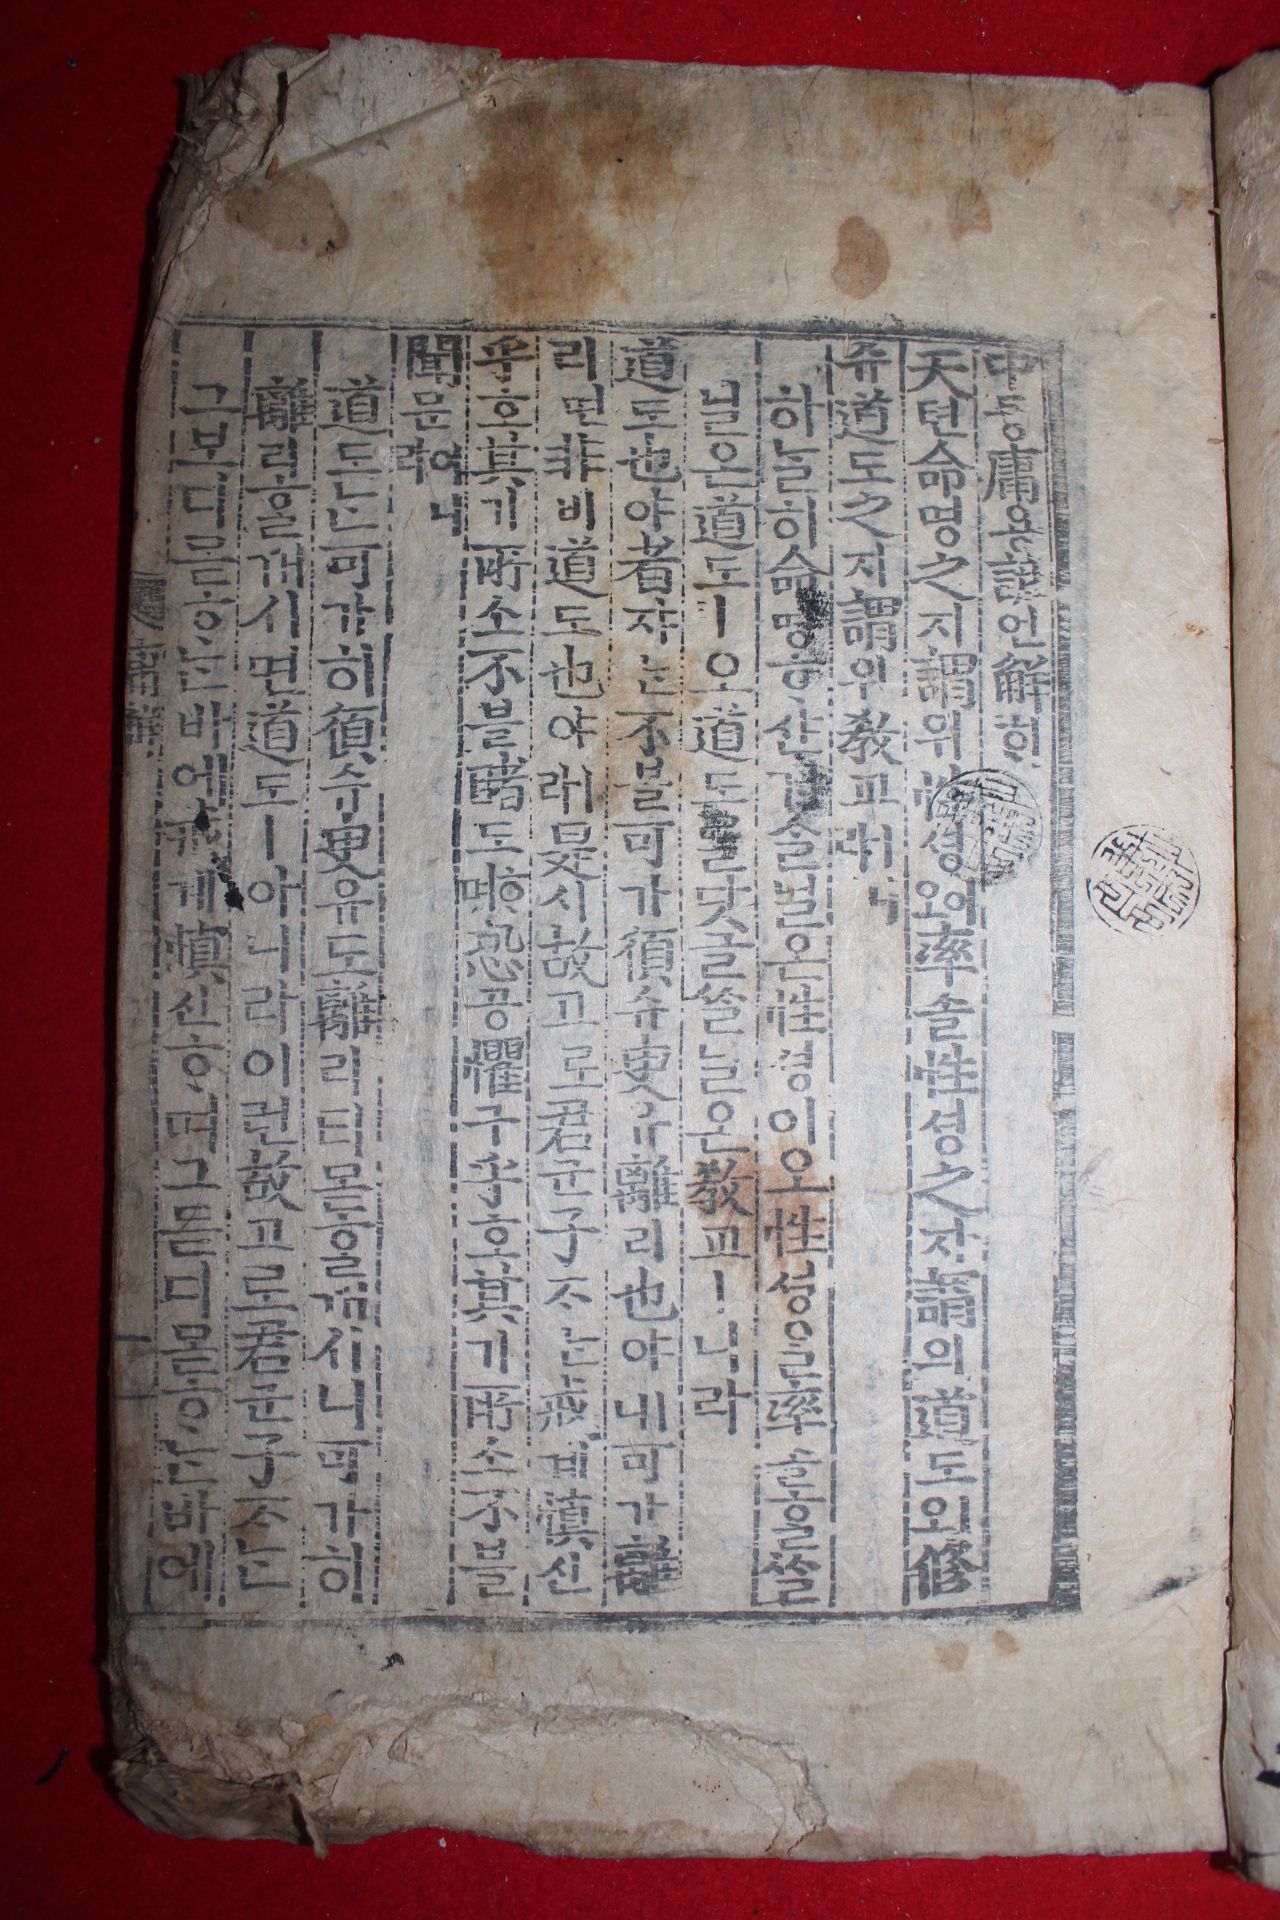 中듕庸용諺언解ᄒᆡ
天텬命명之지謂위性셩이오率솔性셩之지謂위道도ㅣ오修
슈道도之지謂위敎교ㅣ니라
하ᄂᆞᆯ히命명ᄒᆞ샨거슬닐온性셩이오性셩을率솔ᄒᆞᆯ쓸
닐온道도ㅣ오道도ᄅᆞᆯ닷글쓸닐온敎교ㅣ니라
道도也야者쟈ᄂᆞᆫ不블可가須슈臾유離리也야ㅣ니可가離
리면非비道도也야ㅣ라是시故고로君군子ᄌᆞᄂᆞᆫ戒계愼신
乎호其기所소不블睹도ᄒᆞ며恐공懼구乎호其기所소不블
聞문이니라
道도ᄂᆞᆫ可가히須슈臾유도離리티몯ᄒᆞᆯ꺼시니可가히
離리ᄒᆞᆯ꺼시면道도ㅣ아니라이런故고로君군子ᄌᆞᄂᆞᆫ
그보디몯ᄒᆞᄂᆞᆫ바에戒계愼신ᄒᆞ며그듣디몯ᄒᆞᄂᆞᆫ바에